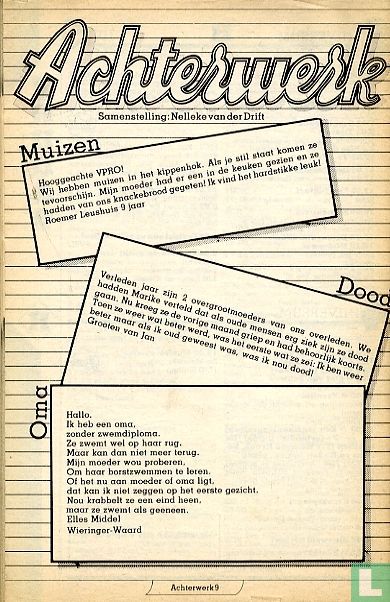 Achterwerk
Samenstelling: Nelleke van der Drift
Muizen
Hooggeachte VPRO!
Wij hebben muizen in het kippenhok. Als je stil staat komen ze
tevoorschijn. Mijn moeder had er een in de keuken gezien en ze
hadden van ons knackebrood gegeten! Ik vind het hardstikke leuk!
Roemer Leushuis 9 jaar
Dood
Verleden jaar zijn 2 overgrootmoeders van ons overleden. We
hadden Marike verteld dat als oude mensen erg ziek zijn ze dood
gaan. Nu kreeg ze de vorige maand griep en had behoorlijk koorts.
Toen ze weer wat beter werd, was het eerste wat ze zei: Ik ben weer
beter maar als ik oud geweest was, was ik nou dood!
Groeten van Jan
Oma
Hallo.
Ik heb een oma,
zonder zwemdiploma.
Ze zwemt wel op haar rug.
Maar kan dan niet meer terug.
Mijn moeder wou proberen,
Om haar borstzwemmen te leren.
Of het nu aan moeder of oma ligt,
dat kan ik niet zeggen op het eerste gezicht.
Nou krabbelt ze een eind heen,
maar ze zwemt als geeneen.
Elles Middel
Wieringer-Waard
Achterwerk 9
L